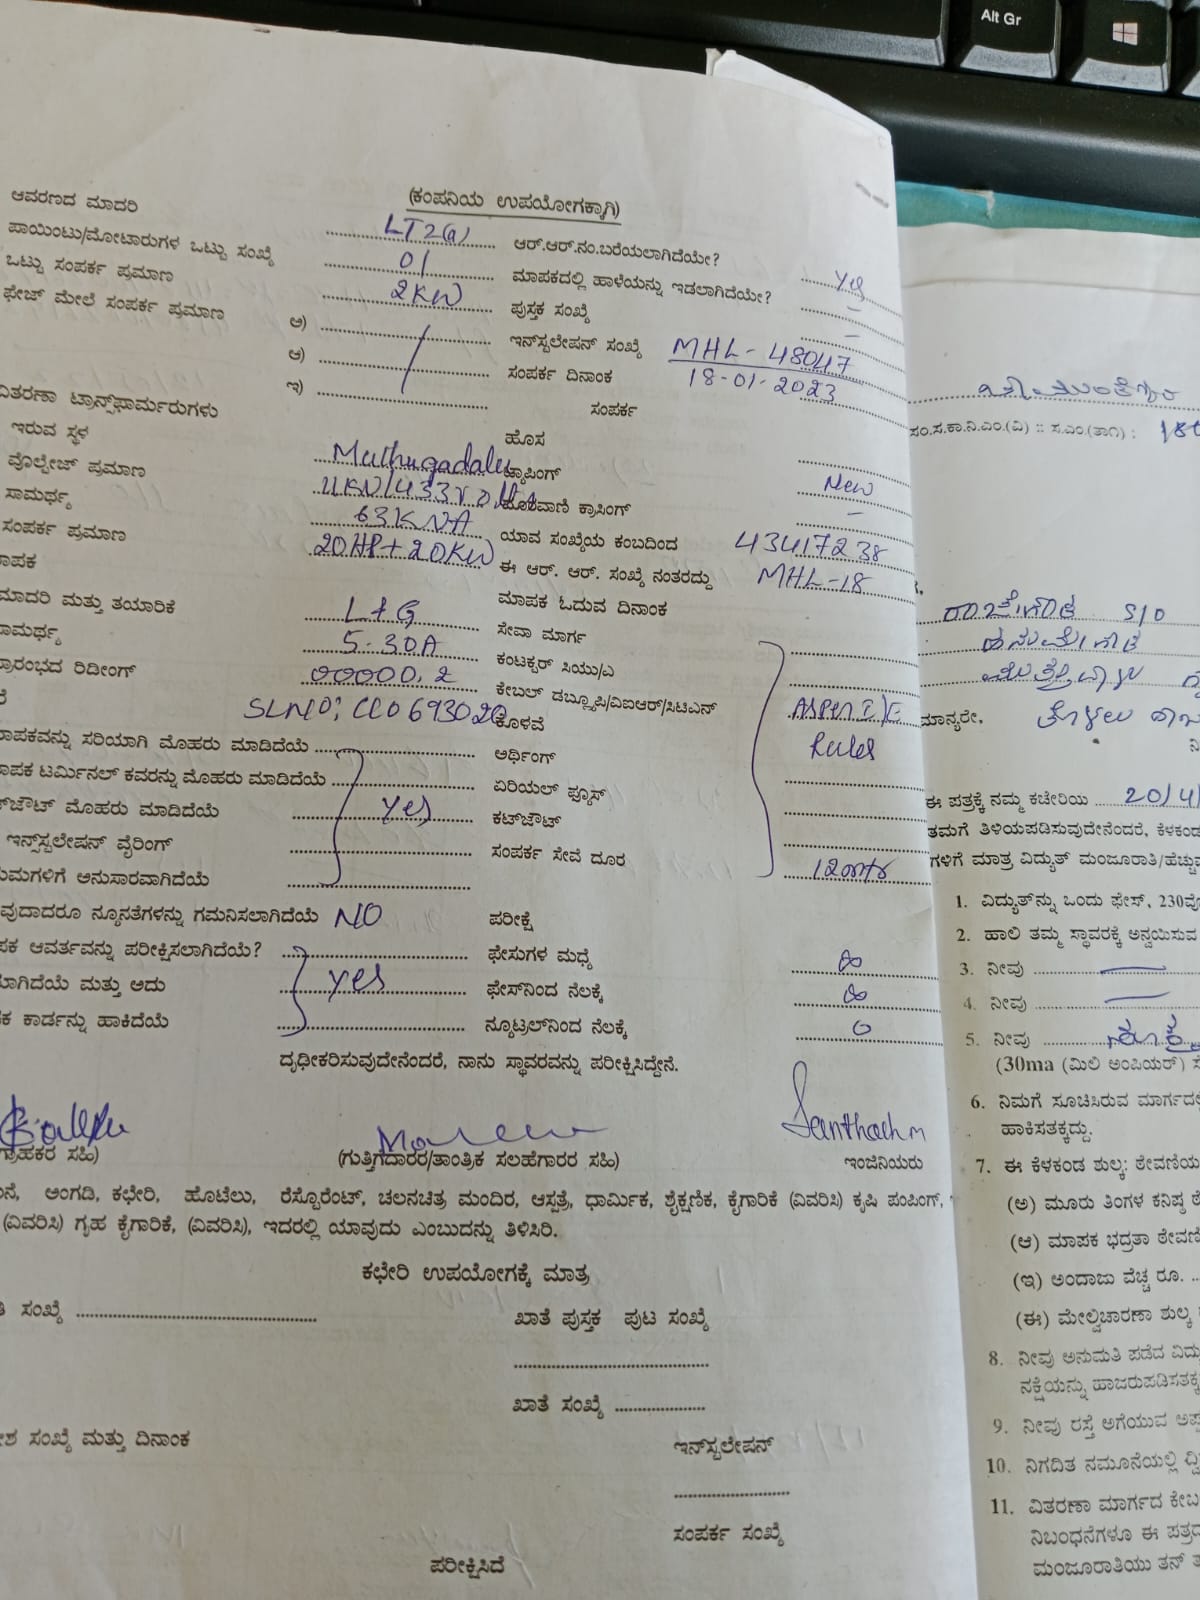 Alt Gr
(ಕಂಪನಿಯ ಉಪಯೋಗಕ್ಕಾಗಿ)
ಆವರಣದ ಮಾದರಿ LT2(a) ಆರ್.ಆರ್.ನಂ.ಬರೆಯಲಾಗಿದೆಯೇ? Yes
ಪಾಯಿಂಟು/ಮೋಟಾರುಗಳ ಒಟ್ಟು ಸಂಖ್ಯೆ 01 ಮಾಪಕದಲ್ಲಿ ಹಾಳೆಯನ್ನು ಇಡಲಾಗಿದೆಯೇ? –
ಒಟ್ಟು ಸಂಪರ್ಕ ಪ್ರಮಾಣ 2KW ಪುಸ್ತಕ ಸಂಖ್ಯೆ –
ಫೇಜ್ ಮೇಲೆ ಸಂಪರ್ಕ ಪ್ರಮಾಣ ಅ) ಇನ್‌ಸ್ಟಲೇಷನ್ ಸಂಖ್ಯೆ MHL-48047
ಆ) ಸಂಪರ್ಕ ದಿನಾಂಕ 18-01-2023
ಇ) ಸಂಪರ್ಕ
ವಿತರಣಾ ಟ್ರಾನ್ಸ್‌ಫಾರ್ಮರುಗಳು
ಇರುವ ಸ್ಥಳ Muthugadalu ಹೊಸ New
ವೊಲ್ಟೇಜ್ ಪ್ರಮಾಣ 11KV/433Volts ಟ್ಯಾಪಿಂಗ್ –
ಸಾಮರ್ಥ್ಯ 63KVA ಕ್ರಾಸಿಂಗ್
ಸಂಪರ್ಕ ಪ್ರಮಾಣ 20HP+20KW ಯಾವ ಸಂಖ್ಯೆಯ ಕಂಬದಿಂದ 43417238
ಮಾಪಕ ಈ ಆರ್. ಆರ್. ಸಂಖ್ಯೆ ನಂತರದ್ದು MHL-18
ಮಾದರಿ ಮತ್ತು ತಯಾರಿಕೆ L+G ಮಾಪಕ ಓದುವ ದಿನಾಂಕ
ಸಾಮರ್ಥ್ಯ 5-30A ಸೇವಾ ಮಾರ್ಗ
ಪ್ರಾರಂಭದ ರಿಡೀಂಗ್ 00000.2 ಕಂಟಕ್ಟರ್ ಸಿಯು/ಎ
SLNO: ಕೇಬಲ್ ಡಬ್ಲ್ಯೂಪಿ/ವಿಐಆರ್/ಸಿಟಿಎನ್ AS Per I/E
ಕೊಳವೆ Rules
ಮಾಪಕವನ್ನು ಸರಿಯಾಗಿ ಮೊಹರು ಮಾಡಿದೆಯೆ ಅರ್ಥಿಂಗ್
ಮಾಪಕ ಟರ್ಮಿನಲ್ ಕವರನ್ನು ಮೊಹರು ಮಾಡಿದೆಯೆ ಏರಿಯಲ್ ಫ್ಯೂಸ್
ಮೊಹರು ಮಾಡಿದೆಯೆ Yes ಕಟ್‌ಔಟ್
ಇನ್‌ಸ್ಟಲೇಷನ್ ವೈರಿಂಗ್ ಸಂಪರ್ಕ ಸೇವೆ ದೂರ 12mtr
ಅನುಸಾರವಾಗಿದೆಯೆ
ನ್ಯೂನತೆಗಳನ್ನು ಗಮನಿಸಲಾಗಿದೆಯೆ NO ಪರೀಕ್ಷೆ
ಆವರ್ತವನ್ನು ಪರೀಕ್ಷಿಸಲಾಗಿದೆಯೆ? ಫೇಸುಗಳ ಮಧ್ಯೆ ∞
ಮತ್ತು ಅದು Yes ಫೇಸ್‌ನಿಂದ ನೆಲಕ್ಕೆ ∞
ಕಾರ್ಡನ್ನು ಹಾಕಿದೆಯೆ ನ್ಯೂಟ್ರಲ್‌ನಿಂದ ನೆಲಕ್ಕೆ 0
ದೃಢೀಕರಿಸುವುದೇನೆಂದರೆ, ನಾನು ಸ್ಥಾವರವನ್ನು ಪರೀಕ್ಷಿಸಿದ್ದೇನೆ.
Santhosh M
ಗ್ರಾಹಕರ ಸಹಿ) (ಗುತ್ತಿಗೆದಾರರ/ತಾಂತ್ರಿಕ ಸಲಹೆಗಾರರ ಸಹಿ) ಇಂಜಿನಿಯರು
ಅಂಗಡಿ, ಕಛೇರಿ, ಹೊಟೆಲು, ರೆಸ್ಟೊರೆಂಟ್, ಚಲನಚಿತ್ರ ಮಂದಿರ, ಆಸ್ಪತ್ರೆ, ಧಾರ್ಮಿಕ, ಶೈಕ್ಷಣಿಕ, ಕೈಗಾರಿಕೆ (ವಿವರಿಸಿ) ಕೃಷಿ ಪಂಪಿಂಗ್,
(ವಿವರಿಸಿ) ಗೃಹ ಕೈಗಾರಿಕೆ, (ವಿವರಿಸಿ), ಇದರಲ್ಲಿ ಯಾವುದು ಎಂಬುದನ್ನು ತಿಳಿಸಿರಿ.
ಕಛೇರಿ ಉಪಯೋಗಕ್ಕೆ ಮಾತ್ರ
ಸಂಖ್ಯೆ ಖಾತೆ ಪುಸ್ತಕ ಪುಟ ಸಂಖ್ಯೆ
ಖಾತೆ ಸಂಖ್ಯೆ
ಸಂಖ್ಯೆ ಮತ್ತು ದಿನಾಂಕ ಇನ್‌ಸ್ಟಲೇಷನ್
ಸಂಪರ್ಕ ಸಂಖ್ಯೆ
ಪರೀಕ್ಷಿಸಿದೆ
ಸಂ.ಸ.ಕಾ.ನಿ.ಎಂ.(ವಿ) :: ಸ.ಎಂ.(ತಾ೧) :
S/O
ಮಾನ್ಯರೇ,
ಈ ಪತ್ರಕ್ಕೆ ನಮ್ಮ ಕಚೇರಿಯ 20/4/
ತಮಗೆ ತಿಳಿಯಪಡಿಸುವುದೇನೆಂದರೆ, ಕೆಳಕಂಡ
ಗಳಿಗೆ ಮಾತ್ರ ವಿದ್ಯುತ್ ಮಂಜೂರಾತಿ/ಹೆಚ್ಚು
1. ವಿದ್ಯುತ್‌ನ್ನು ಒಂದು ಫೇಸ್, 230ವೋ
2. ಹಾಲಿ ತಮ್ಮ ಸ್ಥಾವರಕ್ಕೆ ಅನ್ವಯಿಸುವ
3. ನೀವು
4. ನೀವು
5. ನೀವು
(30ma (ಮಿಲಿ ಅಂಪಿಯರ್)
6. ನಿಮಗೆ ಸೂಚಿಸಿರುವ ಮಾರ್ಗದಲ್ಲಿ
ಹಾಕಿಸತಕ್ಕದ್ದು.
7. ಈ ಕೆಳಕಂಡ ಶುಲ್ಕ: ಠೇವಣಿಯ
(ಅ) ಮೂರು ತಿಂಗಳ ಕನಿಷ್ಠ
(ಆ) ಮಾಪಕ ಭದ್ರತಾ ಠೇವಣಿ
(ಇ) ಅಂದಾಜು ವೆಚ್ಚ ರೂ.
(ಈ) ಮೇಲ್ವಿಚಾರಣಾ ಶುಲ್ಕ
8. ನೀವು ಅನುಮತಿ ಪಡೆದ ವಿದ್ಯು
ನಕ್ಷೆಯನ್ನು ಹಾಜರುಪಡಿಸತಕ್ಕ
9. ನೀವು ರಸ್ತೆ ಅಗೆಯುವ
10. ನಿಗದಿತ ನಮೂನೆಯಲ್ಲಿ
11. ವಿತರಣಾ ಮಾರ್ಗದ ಕೇಬ
ನಿಬಂಧನೆಗಳೂ ಈ ಪತ್ರದ
ಮಂಜೂರಾತಿಯು ತನ್